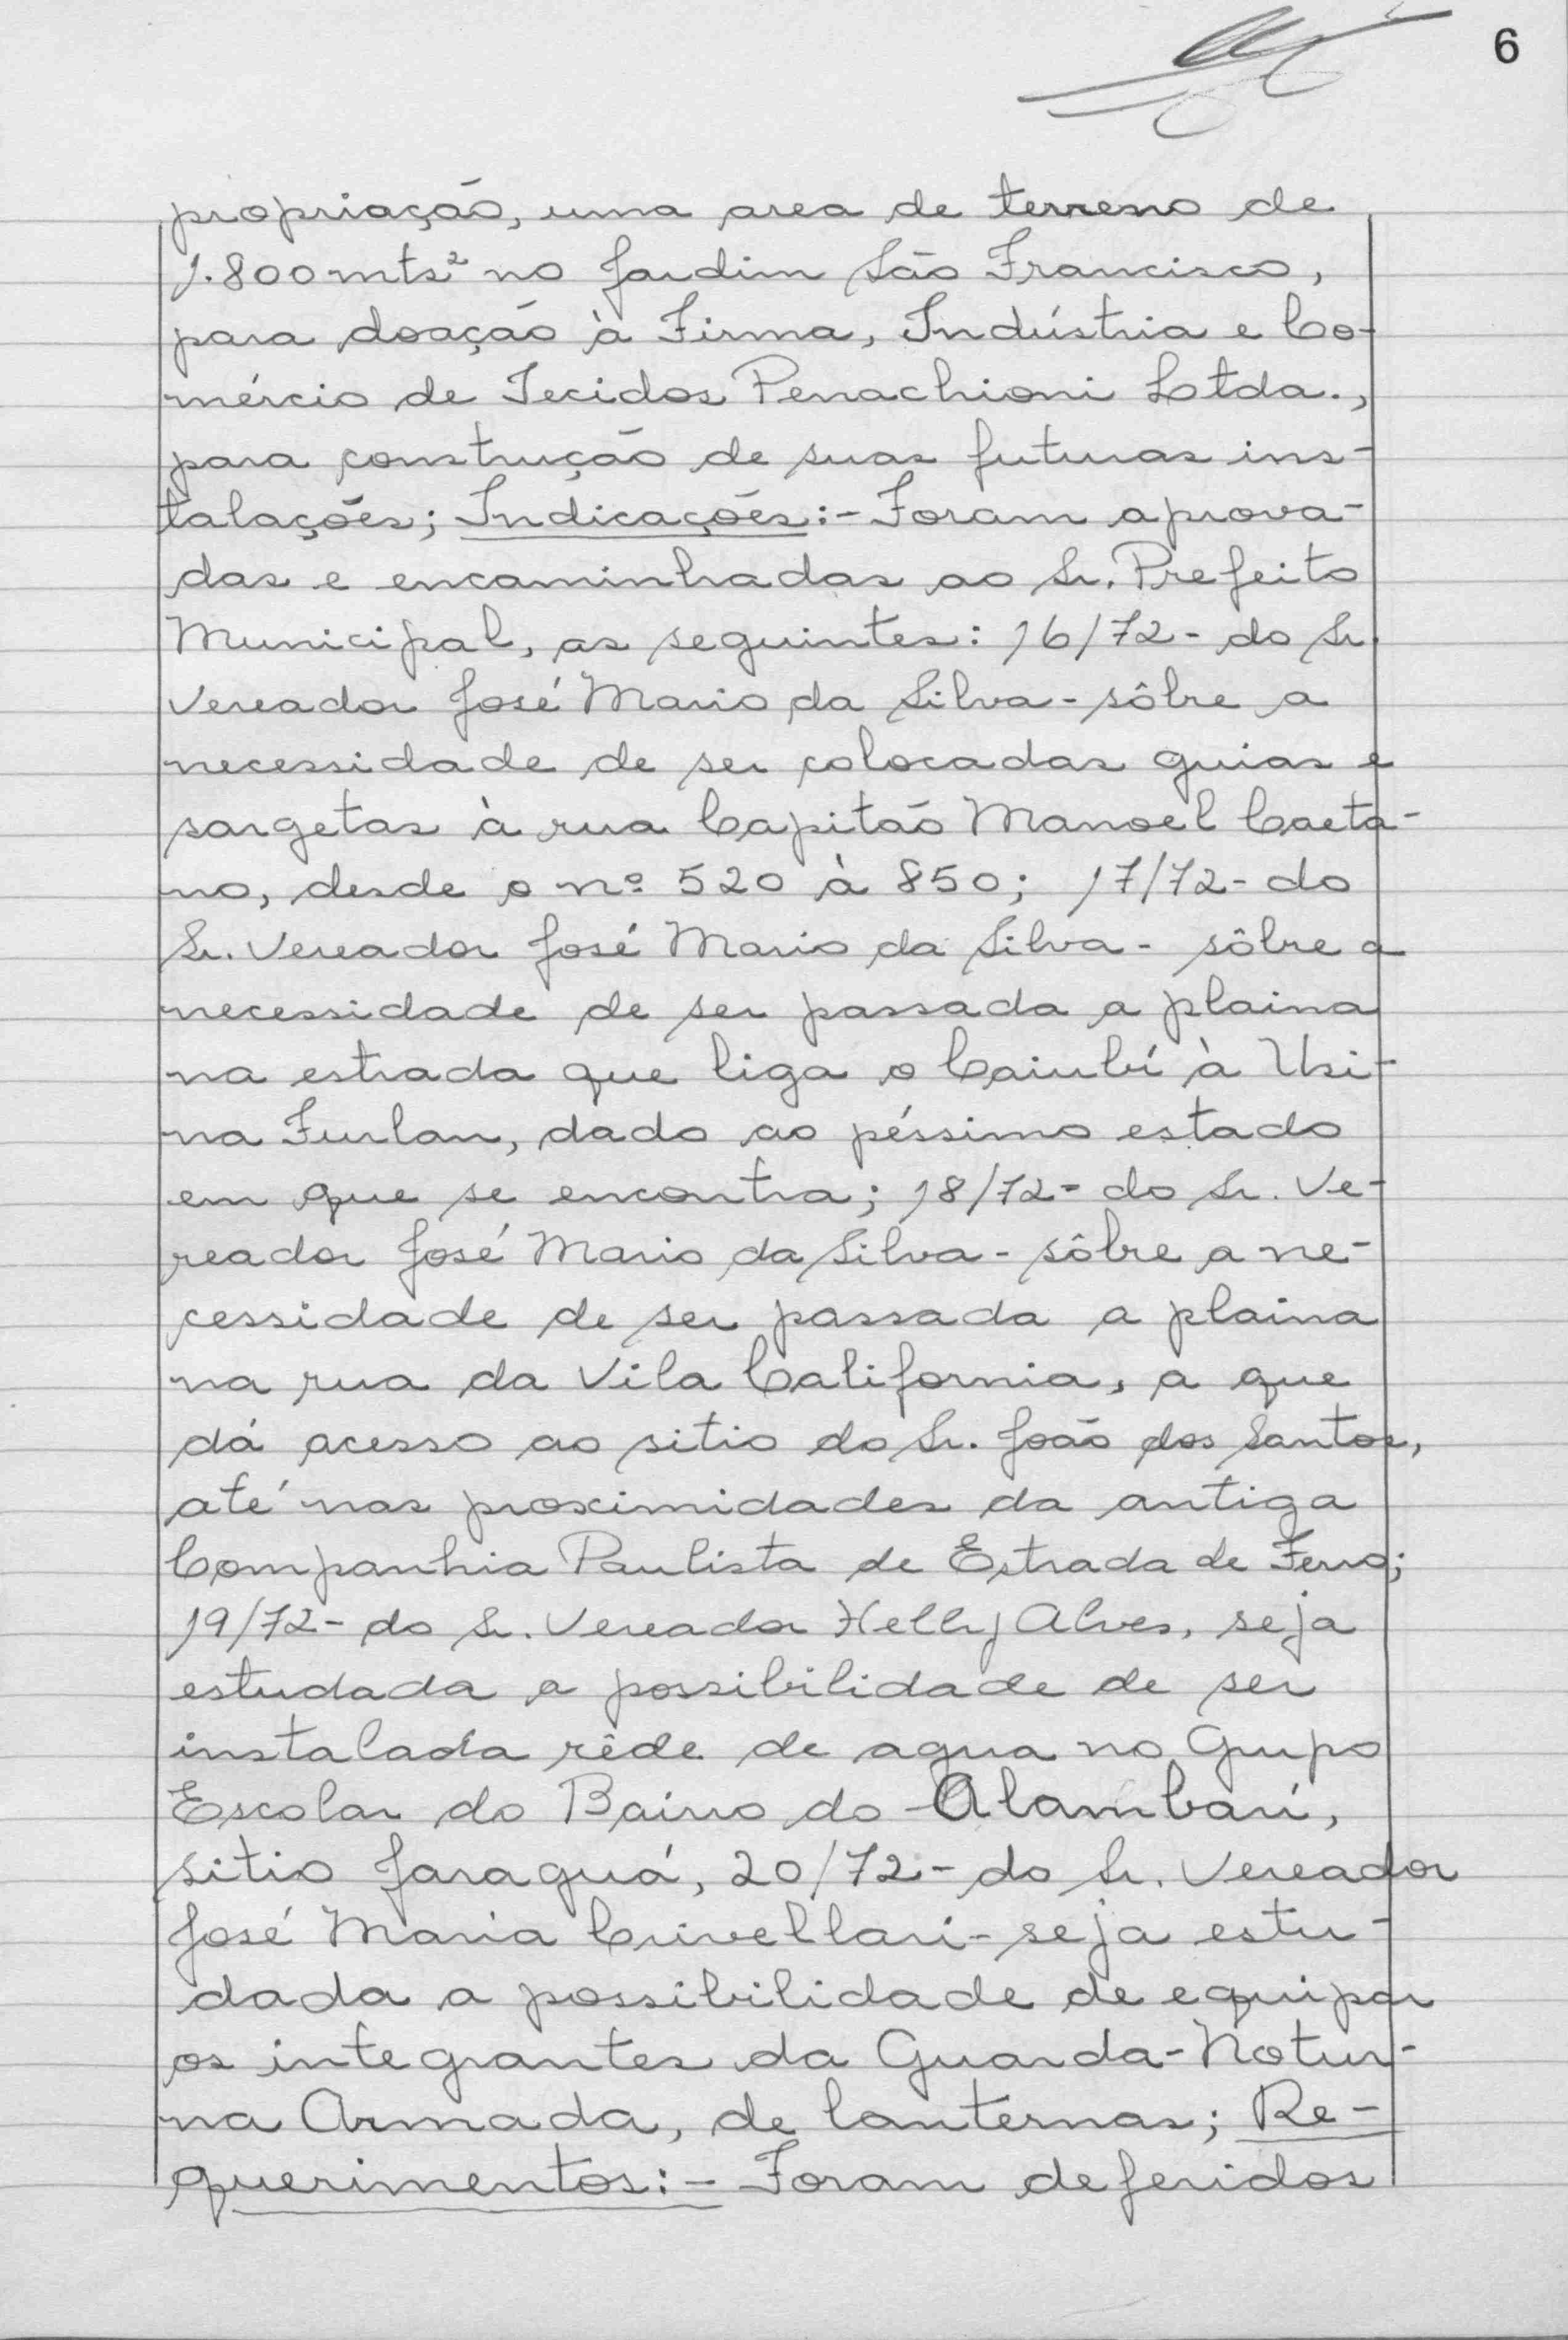 6
propriação, uma area de terreno de
1.800 mts² no Jardim São Francisco,
para doação à Firma, Indústria e Co-
mércio de Tecidos Penachioni Ltda.,
para construção de suas futuras ins-
talações; Indicações:- Foram aprova-
das e encaminhadas ao Sr. Prefeito
Municipal, as seguintes: 16/72- do Sr.
Vereador José Mario da Silva - sôbre a
necessidade de ser colocadas guias e
sargetas à rua Capitão Manoel Caeta-
no, desde o nº 520 à 850; 17/72- do
Sr. Vereador José Mario da Silva - sôbre a
necessidade de ser passada a plaina
na estrada que liga o Caiubí à Usi-
na Furlan, dado ao péssimo estado
em que se encontra; 18/72- do Sr. Ve-
reador José Mario da Silva - sôbre a ne-
cessidade de ser passada a plaina
na rua da Vila California, a que
dá acesso ao sitio do Sr. João dos Santos,
até nas proximidades da antiga
Companhia Paulista de Estrada de Ferro;
19/72- do Sr. Vereador Helly Alves, seja
estudada a possibilidade de ser
instalada rêde de agua no Grupo
Escolar do Bairro do Alambari,
sitio Jaraguá, 20/72- do Sr. Vereador
José Maria Crivellari - seja estu-
dada a possibilidade de equipar
os integrantes da Guarda-Notur-
na Armada, de lanternas; Re-
querimentos:- Foram deferidos